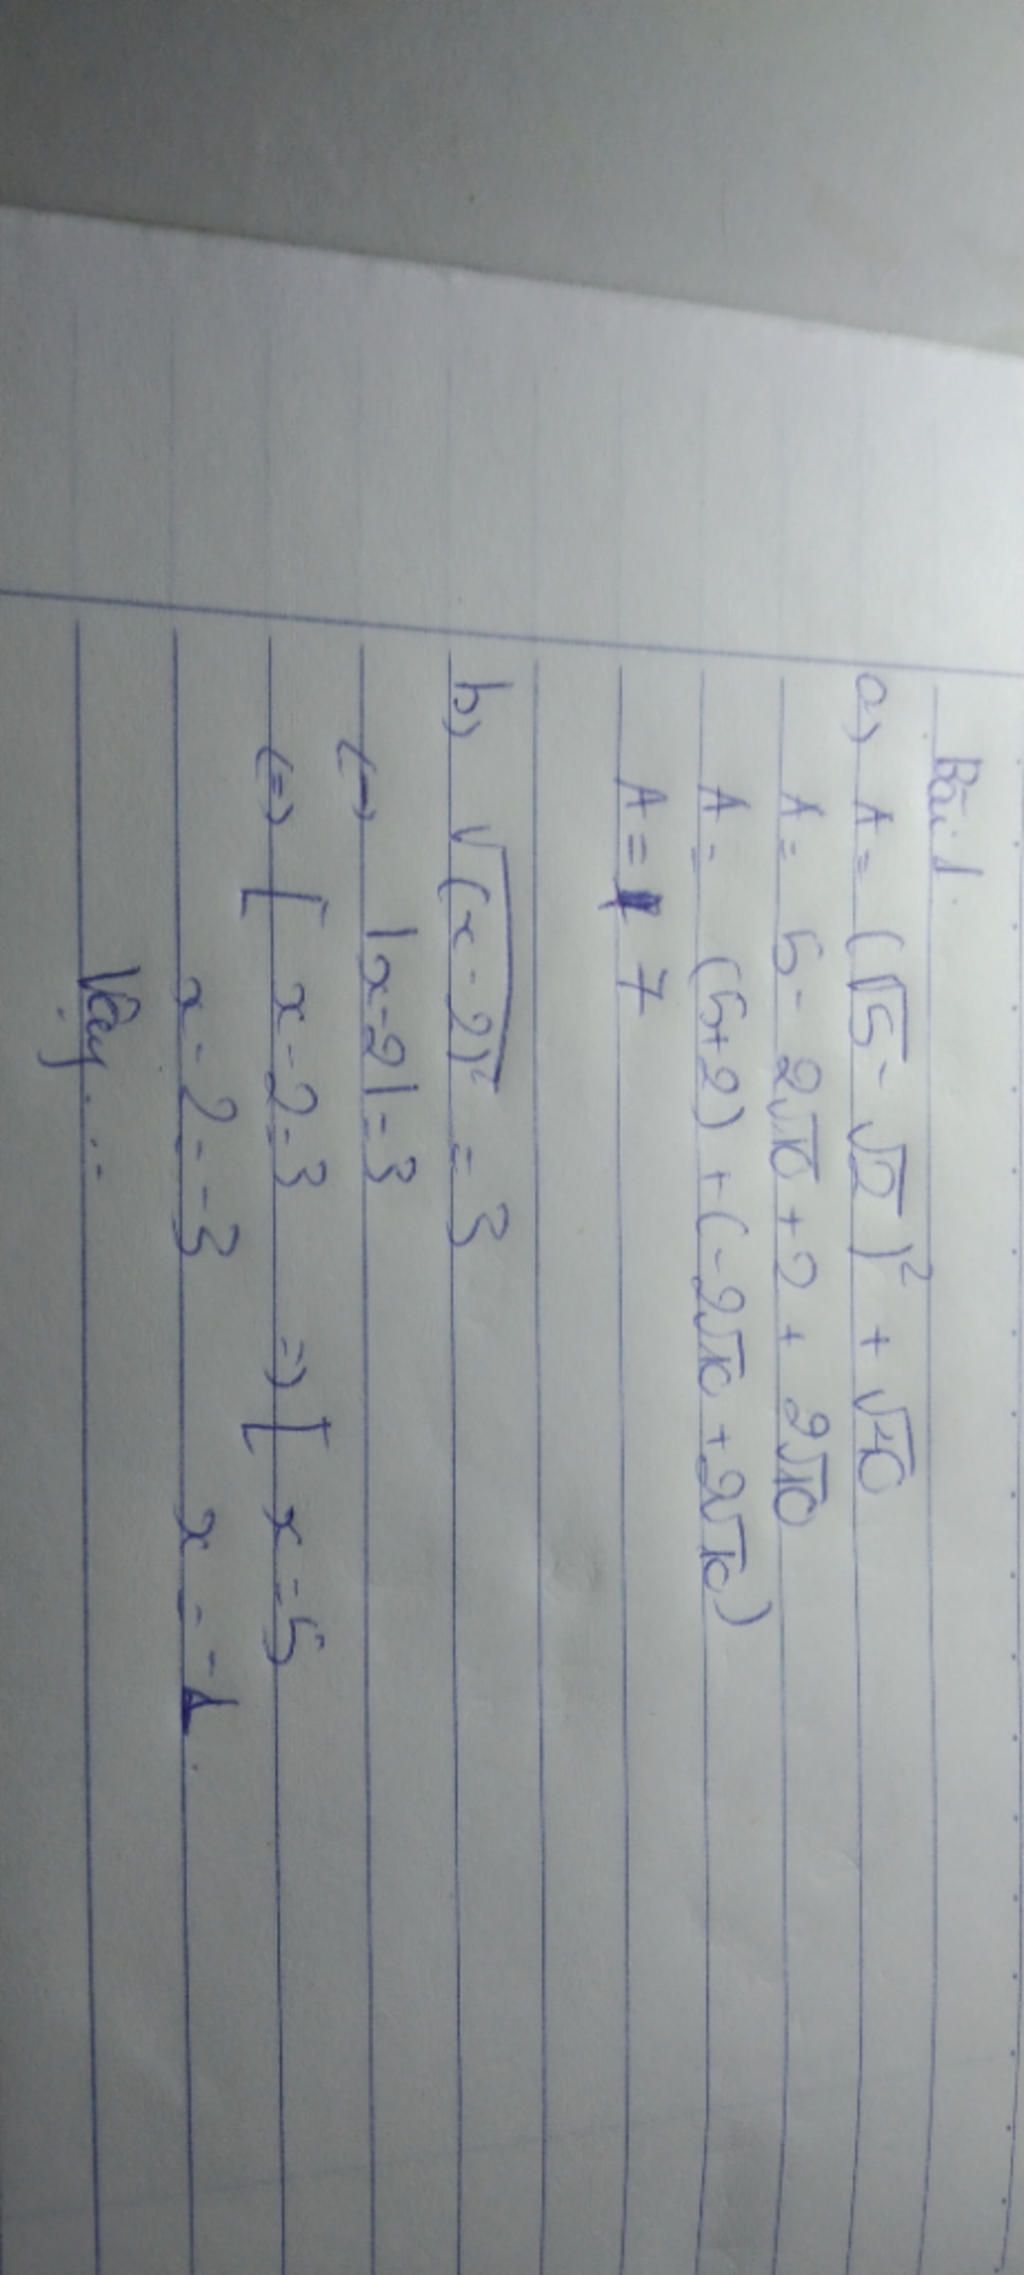 Bài 1.
a) A = (√5 - √2)² + √40
A = 5 - 2√10 + 2 + 2√10
A = (5+2) + (-2√10 + 2√10)
A = 7
b) √(x-2)² = 3
(=) |x-2| = 3
(=) [ x-2=3 =) [ x=5
x-2=-3 x=-1.
Vậy...